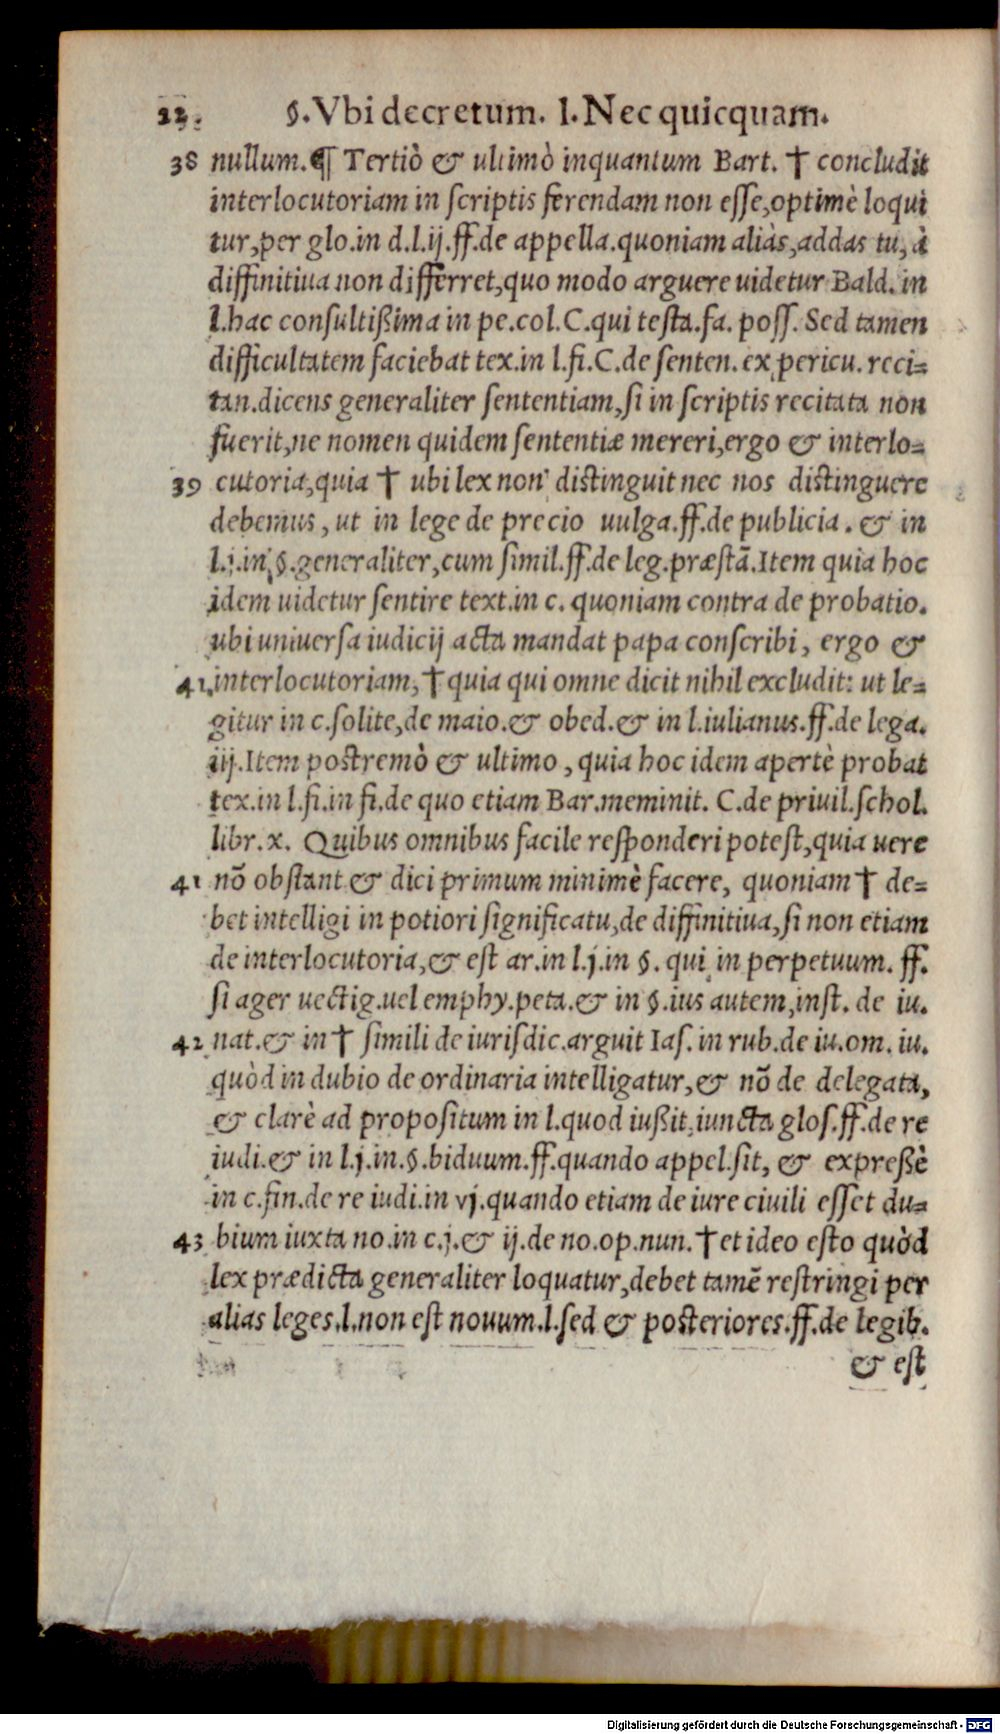 22. §. Vbi decretum. l. Nec quicquam.
38 nullum. ¶ Tertiò & ultimò inquantum Bart. † concludit
interlocutoriam in scriptis ferendam non esse, optimè loqui
tur, per glo. in d. l. ij. ff. de appella. quoniam aliàs, addas tu, à
diffinitiua non differret, quo modo arguere uidetur Bald. in
l. hac consultißima in pe. col. C. qui testa. fa. poss. Sed tamen
difficultatem faciebat tex. in l. fi. C. de senten. ex pericu. reci=
tan. dicens generaliter sententiam, si in scriptis recitata non
fuerit, ne nomen quidem sententiæ mereri, ergo & interlo=
39 cutoria, quia † ubi lex non distinguit nec nos distinguere
debemus, ut in lege de precio uulga. ff. de publicia. & in
l. j. in §. generaliter, cum simil. ff. de leg. præstã. Item quia hoc
idem uidetur sentire text. in c. quoniam contra de probatio.
ubi uniuersa iudicij acta mandat papa conscribi, ergo &
41 interlocutoriam, † quia qui omne dicit nihil excludit: ut le=
gitur in c. solite, de maio. & obed. & in l. iulianus. ff. de lega.
iij. Item postremò & ultimo, quia hoc idem apertè probat
tex. in l. fi. in fi. de quo etiam Bar. meminit. C. de priuil. schol.
libr. x. Quibus omnibus facile responderi potest, quia uere
41 nõ obstant & dici primum minimè facere, quoniam † de=
bet intelligi in potiori significatu, de diffinitiua, si non etiam
de interlocutoria, & est ar. in l. j. in §. qui in perpetuum. ff.
si ager uectig. uel emphy. peta. & in §. ius autem, inst. de iu.
42 nat. & in † simili de iurisdic. arguit Ias. in rub. de iu. om. iu.
quòd in dubio de ordinaria intelligatur, & nõ de delegata,
& clarè ad propositum in l. quod iußit, iuncta glos. ff. de re
iudi. & in l. j. in. §. biduum. ff. quando appel. sit, & expreßè
in c. fin. de re iudi. in vj. quando etiam de iure ciuili esset du=
43 bium iuxta no. in c. j. & ij. de no. op. nun. † et ideo esto quòd
lex prædicta generaliter loquatur, debet tamẽ restringi per
alias leges, l. non est nouum. l. sed & posteriores. ff. de legib.
& est
Digitalisierung gefördert durch die Deutsche Forschungsgemeinschaft - DFG